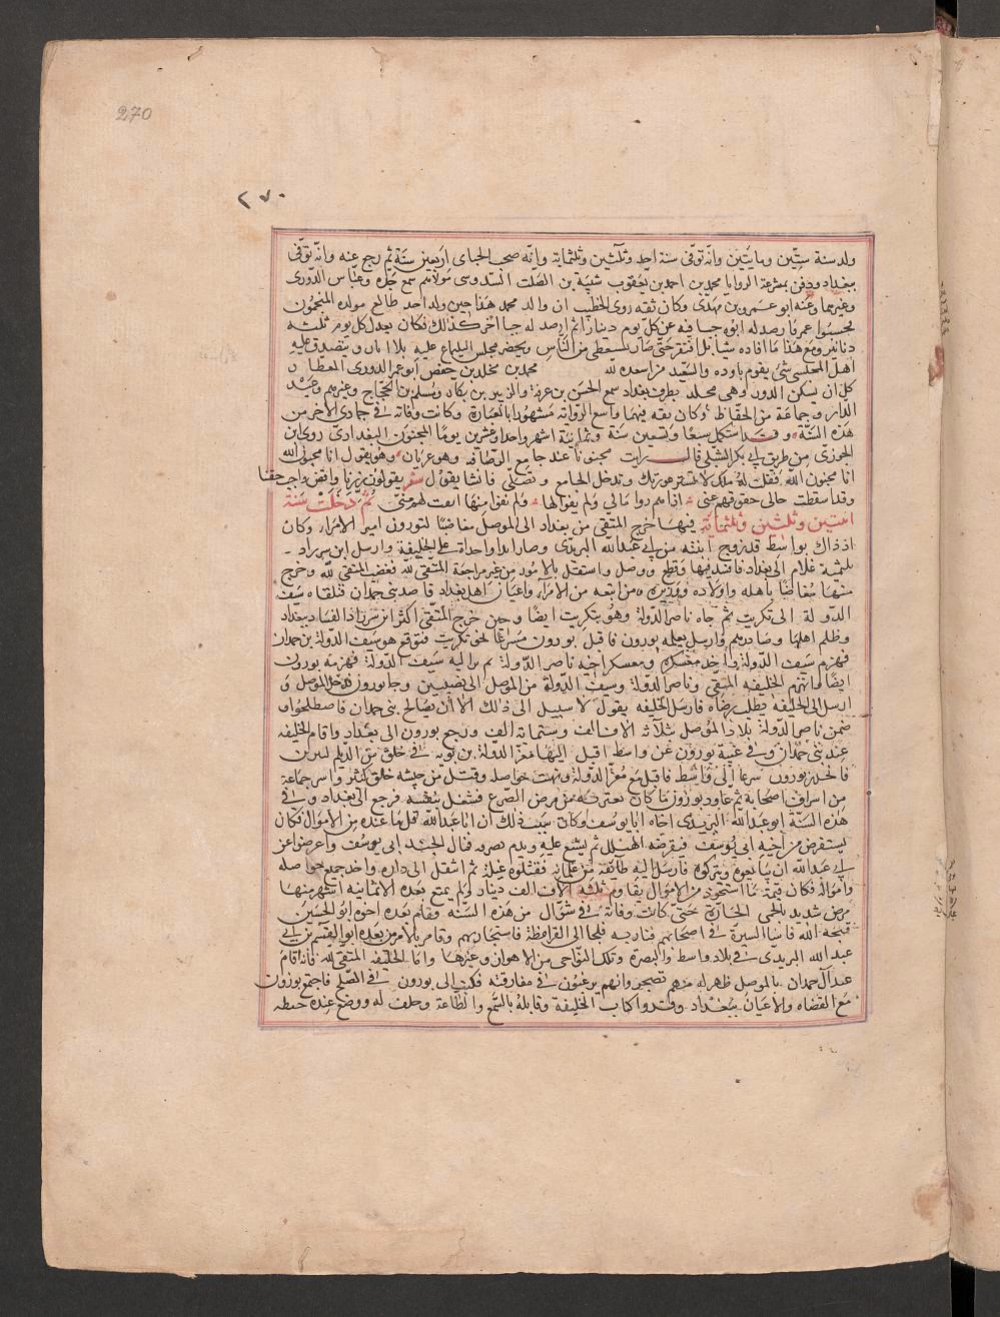 270
٢٧٠
ولد سنة ستين ومايتين وانه توفى سنة احد وثلثين وثلثماية وانه صحب الجباى اربعين سنة ثم رجع عنه وانه توفى
ببغداد ودفن بمشرعة الروايا محمد بن احمد بن يعقوب شيبة بن الصلت السدوسى مولاهم سمع جده وعباس الدورى
وغيرهما وعنه ابو عمر بن مهدى وكان ثقه روى الخطيب ان والد محمد هذا حين ولد اخذ طالع مولده المنجمون
فحسبوا عمره ارصد له ابوه جبا فيه عن كل يوم دينارا ثم ارصد له جبا اخر كذلك فكان يعدل كل يوم ثلثة
دنانير ومع هذا ما افاده شيا بل افتقر حتى صار يستعطى من الناس ويحضر مجلس السماع عليه بلا ازار ويتصدق عليه
اهل المجلس شى يقوم باوده والسعيد من اسعده الله محمد بن مخلد بن حفص ابو عمر الدورى العطار
كان يسكن الدور وهى محله بطرف بغداد سمع الحسن بن عرفة والزبير بن بكار ومسلم بن الحجاج وغيرهم وعنه
الدار وجماعة من الحفاظ وكان ثقه فهما واسع الرواية مشهورا بالعبارة وكانت وفاته فى جمادى الاخر من
هذه السنة وقد استكمل سبعا وتسعين سنة وثمانية اشهر واحدا وعشرين يوما المجنون البغدادى روى ابن
الجوزى من طريق ابى بكر الشبلى قال رايت مجنونا عند جامع الرصافه وهو عريان وهو يقول انا مجنون الله
انا مجنون الله فقلت له مالك لا تستتر عورتك وتدخل الجامع وتصلى فانشا يقول شعر يقولون زرنا واقض واجب حقنا
وقد اسقطت حالى حقوقهم عنى اذا هم راوا حالى ولم يانفوا لها ولم يانفوا منها انفت لهم منى ثم دخلت سنة
اثنتين وثلثين وثلثماية فيها خرج المتقى من بغداد الى الموصل مغاضبا لتورون امير الامراء وكان
اذ ذاك بواسط قد زوج ابنته من ابى عبد الله البريدى وصارا يدا واحدة على الخليفة وارسل ابن شيرزاد
ثلثمية غلام الى بغداد فافسد فيها وقطع ووصل واستقل بالامور من غير مراجعة المتقى لله فغضب المتقى لله وخرج
منها مغاضبا باهله واولاده ووزيره ومن اتبعه من الامراء واعيان اهل بغداد قاصد بنى حمدان فتلقاه سيف
الدولة الى تكريت ثم جاه ناصر الدولة وهو بتكريت ايضا وحين خرج المتقى اكثر ابن شيرزاد الفساد ببغداد
وظلم اهلها وصادرهم وارسل يعلمه تورون فاقبل تورون مسرعا نحو تكريت فتواقع هو وسيف الدولة بن حمدان
فهزم سيف الدولة واخذ معسكره ومعسكر اخيه ناصر الدولة ثم كر اليه سيف الدولة فهزمه تورون
ايضا فانهزم الخليفه المتقى وناصر الدولة وسيف الدولة من الموصل الى نصيبين وجا تورون فدخل الموصل و
ارسل الى الخليفه يطلب رضاه فارسل الخليفه يقول لا سبيل الى ذلك الا ان تصالح بنى حمدان فاصطلحوا و
ضمن ناصر الدولة بلاد الموصل بثلاثة الاف الف وستماية الف ورجع تورون الى بغداد واقام الخليفه
عند بنى حمدان وفى غيبة تورون عن واسط اقبل اليها معز الدولة بن بويه فى خلق من الديلم
فانحدر تورون مسرعا الى واسط فاقتتل مع معز الدولة ونهبت حواصله وقتل من جيشه خلق كثير واسر جماعة
من اشراف اصحابه ثم عاود تورون ما كان يعتريه من مرض الصرع فشغل بنفسه فرجع الى بغداد وفى
هذه السنة ابو عبد الله البريدى اخاه ابا يوسف وكان سبب ذلك ان ابا عبد الله قل ما عنده من الاموال فكان
يستقرض من اخيه ابى يوسف فيقرضه القليل ثم يشنع عليه ويذم تصرفه فمال الجند الى ابى يوسف واعرضوا عن
ابى عبد الله ان يبايعوه ويتركوه فارسل اليه طايفة من غلمانه فقتلوه غيلة ثم انتقل الى داره واخذ جميع حواصله
وامواله فكان قيمة ما استحوذ من الاموال يقاوم ثلثة الاف الف دينار ولم يمتع بعده الا ثمانية اشهر منها
مرض شديد بالحمى الحارة حتى كانت وفاته فى شوال من هذه السنه وقام بعده اخوه ابو الحسين
قبحه الله فاسا السيرة فى اصحابهم فثاروا به فلجا الى القرامطة فاستجار بهم وقام بالامر من بعده ابو القسم بن ابى
عبد الله البريدى فى بلاد واسط والبصرة وتلك النواحى من الاهواز وغيرها واما الخليفه المتقى لله فانه اقام
عند ال حمدان بالموصل ظهر له منهم تضجر وانهم يرغبون فى مفارقته فكتب الى تورون فى الصلح فاجتمع بتورون
مع القضاه والاعيان ببغداد وقروا كتاب الخليفة وقابله بالسمع والطاعة وحلف له ووضع عنده خطه